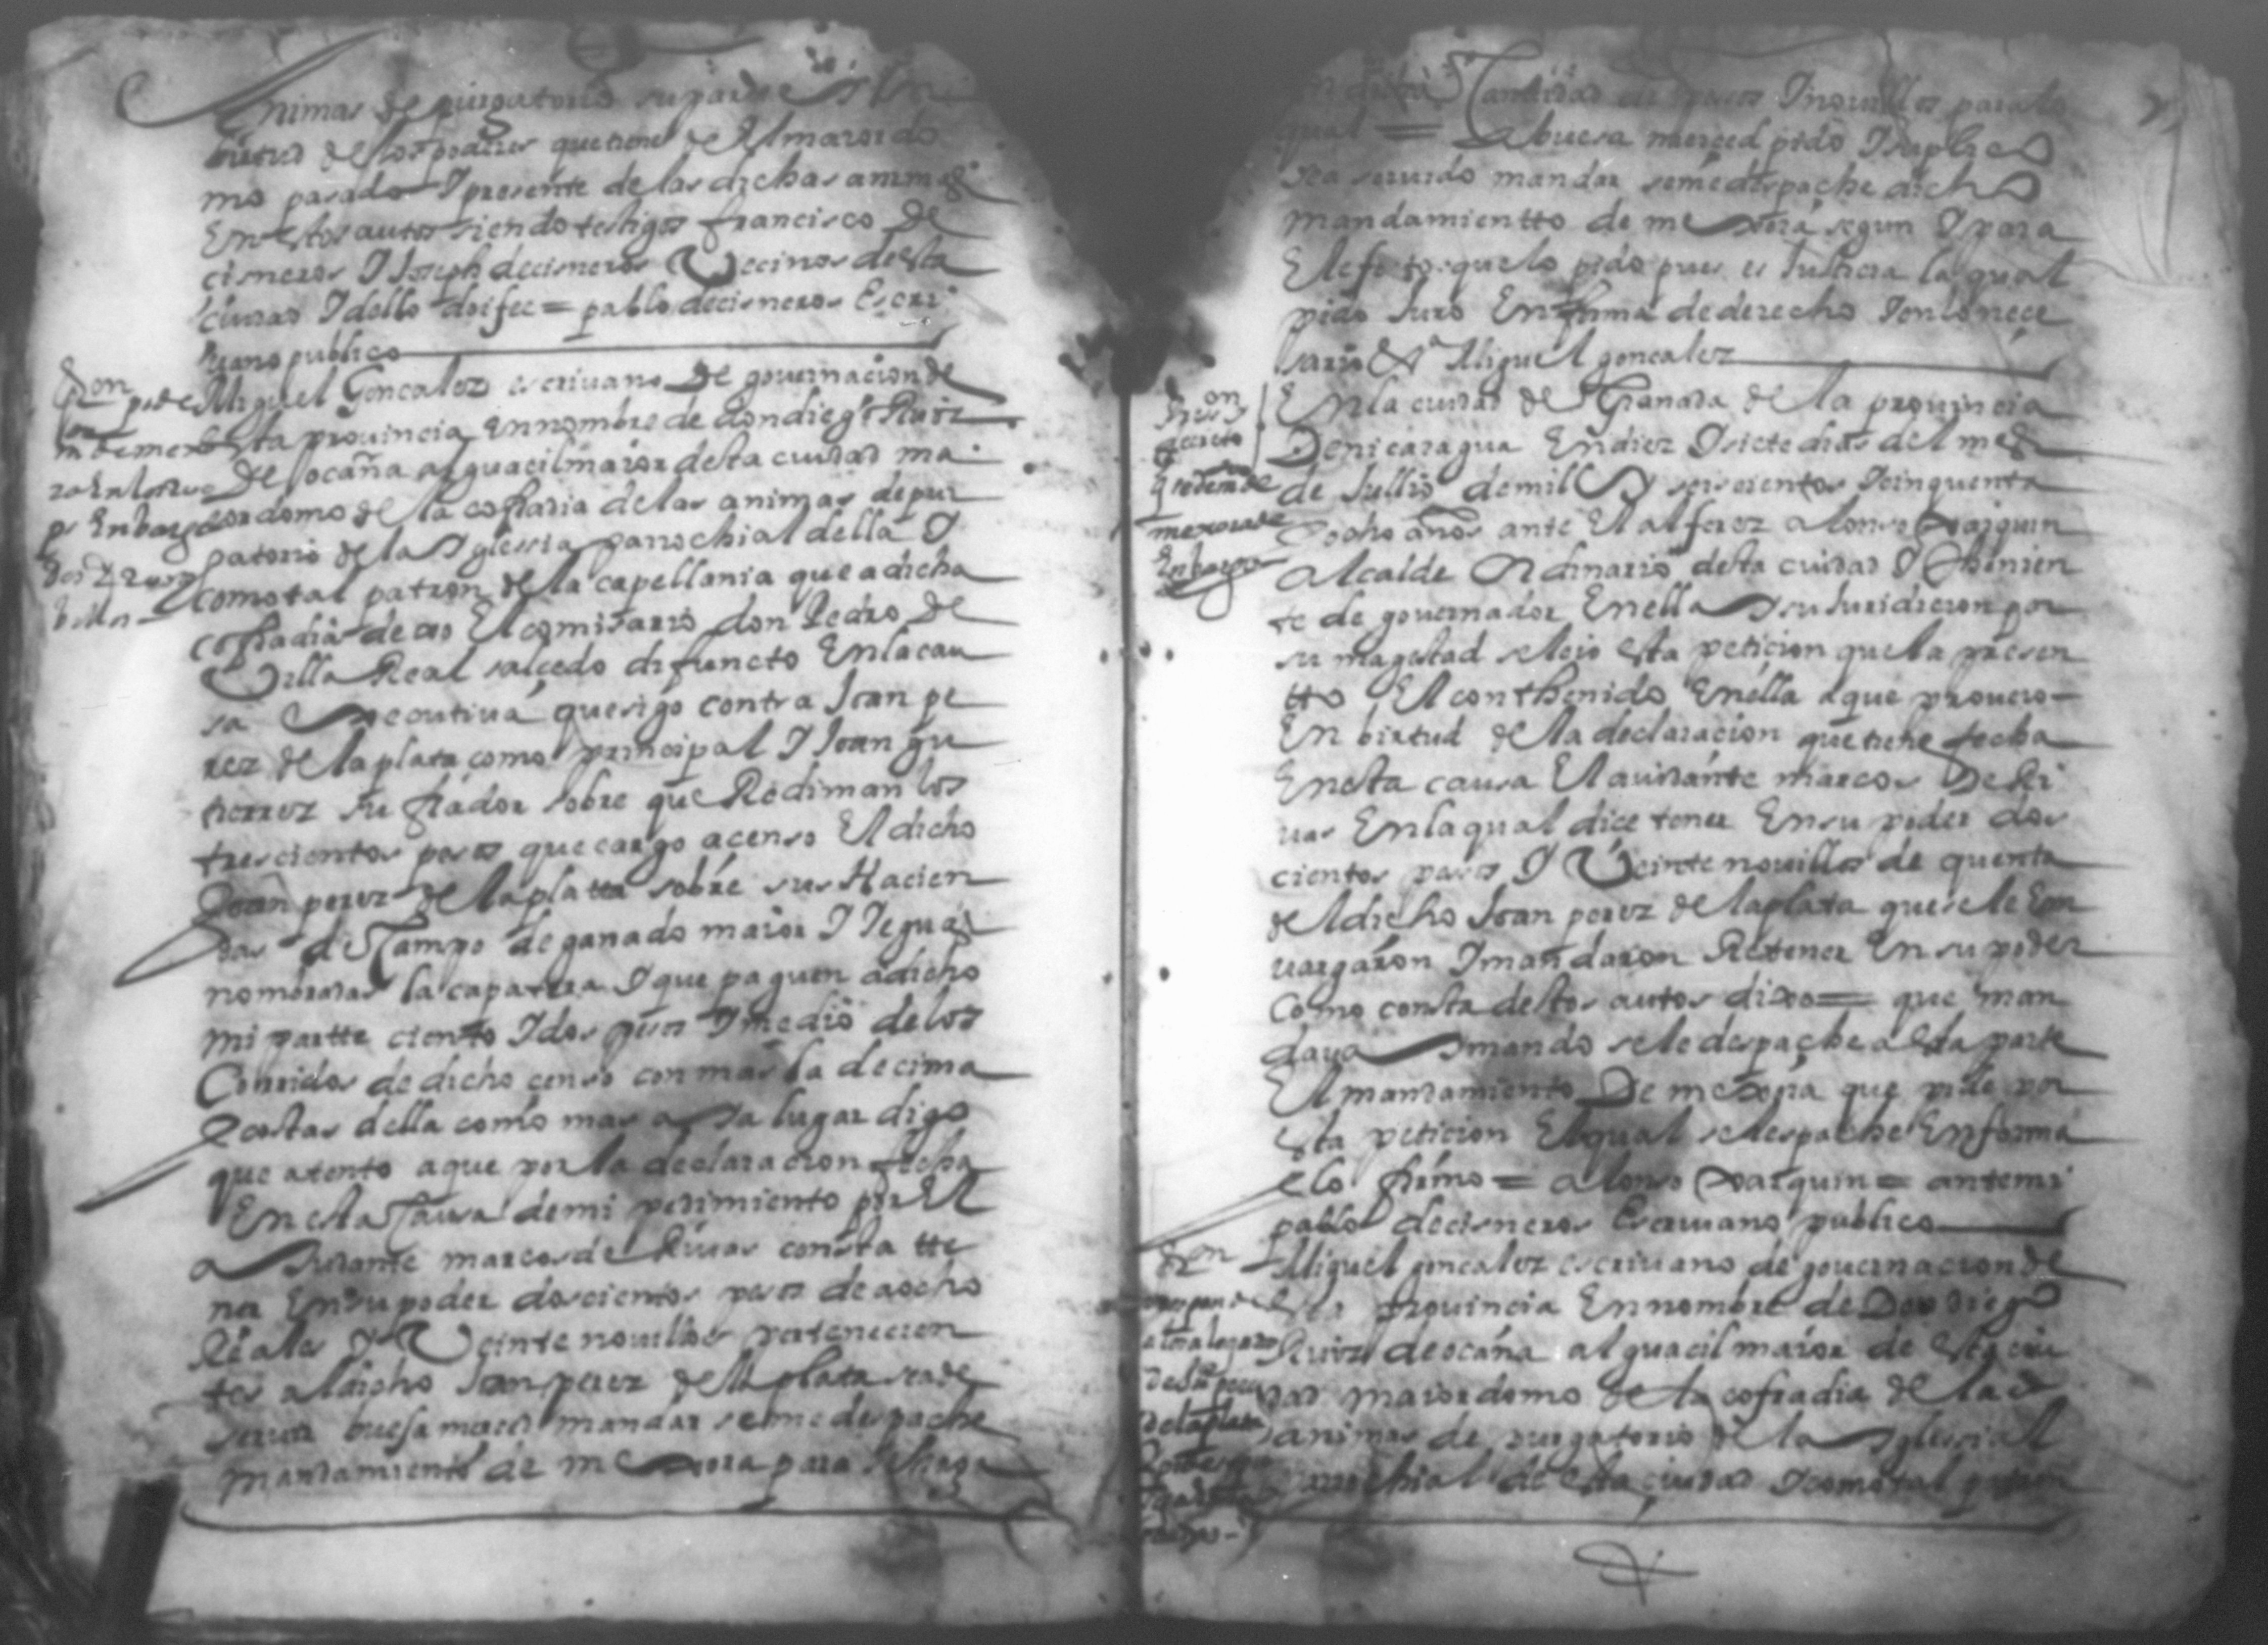 Animas de purgatorio su parte
birtud de los poderes que tiene del maiordo
mo pasado I presente de las dichas animas
En estos autos siendo testigos francisco de
cisneros I Joseph de cisneros Vecinos desta
ciudad I dello doi fee = pablo de cisneros Escri
uano publico
Miguel Goncalez escriuano de gouernacion de
esta prouincia En nombre de don diego Ruiz
de ocaña alguacil maior desta ciudad ma
iordomo de la cofradia de las animas de pur
gatorio de la Yglessia parrochial della I
como tal patron de la capellania que a dicha
cofradia dexo El comisario don Pedro de
Villa Real salcedo difuncto En la cau
sa Executiua que sigo contra Joan pe
rez de la plata como principal I Joan gu
tierrez su fiador sobre que Rediman los
trescientos pesos que cargo a censo El dicho
Joan perez de la platta sobre sus Hacien
das de Campo de ganado maior I Ieguas
nombradas la capatera I que paguen a dicho
mi partte ciento I dos pesos I medio de los
Corridos de dicho censo con mas la decima
I costas della como mas aya lugar digo
que atento a que por la declaracion fecha
En esta Caussa de mi pedimiento por El
ayudante marcos de Riuas consta tte
ner En su poder doscientos pesos de a ocho
Reales I Veinte nouillos pertenecien
tes al dicho Joan perez de la plata sea de
seruir buesa merced mandar se me despache
mandamiento de mexora para Se haga
Don
pide
En dicha Cantidad de pesos I nouillos para lo
qual = A buesa merced pido I suplico
sea seruido mandar se me despache dicho
mandamientto de mexora segun I para
El efecto que lo pido pues es Justicia la qual
pido Juro En forma de derecho I en lo nece
sario &ª Miguel goncalez
En la ciudad de Granada de la prouincia
De nicaragua En diez I siete dias del mes
de Jullio de mill y seiscientos I cinquenta
I ocho años ante El alferez alonso Xarquin
alcalde Ordinario desta ciudad I thenien
te de gouernador En ella y su Juridicion por
su magestad se leio esta peticion que la presen
tto El conthenido En ella a que proueio
En birtud de la declaracion que tiene fecha
En esta causa El aiudante marcos De Ri
uas En la qual dice tener En su poder dos
cientos pesos I Veinte nouillos de quenta
del dicho Joan perez de la plata que se le Em
uargaron I mandaron Retener En su poder
Como consta destos autos dixo = que man
daua y mando se le despache a esta parte
El mandamiento De mexora que pide por
esta peticion El qual se despache En forma
e lo firmo = alonso Xarquin = ante mi
pablo de cisneros Escriuano publico
Miguel goncalez escriuano de gouernacion de
esta prouincia En nombre de Don diego
Ruiz de ocaña alguacil maior de esta ciu
dad maiordomo de la cofradia de las
animas de purgatorio de la Yglessia
parrochial de esta ciudad I como tal patron
decreto
mexora de
Embargo
de la plata